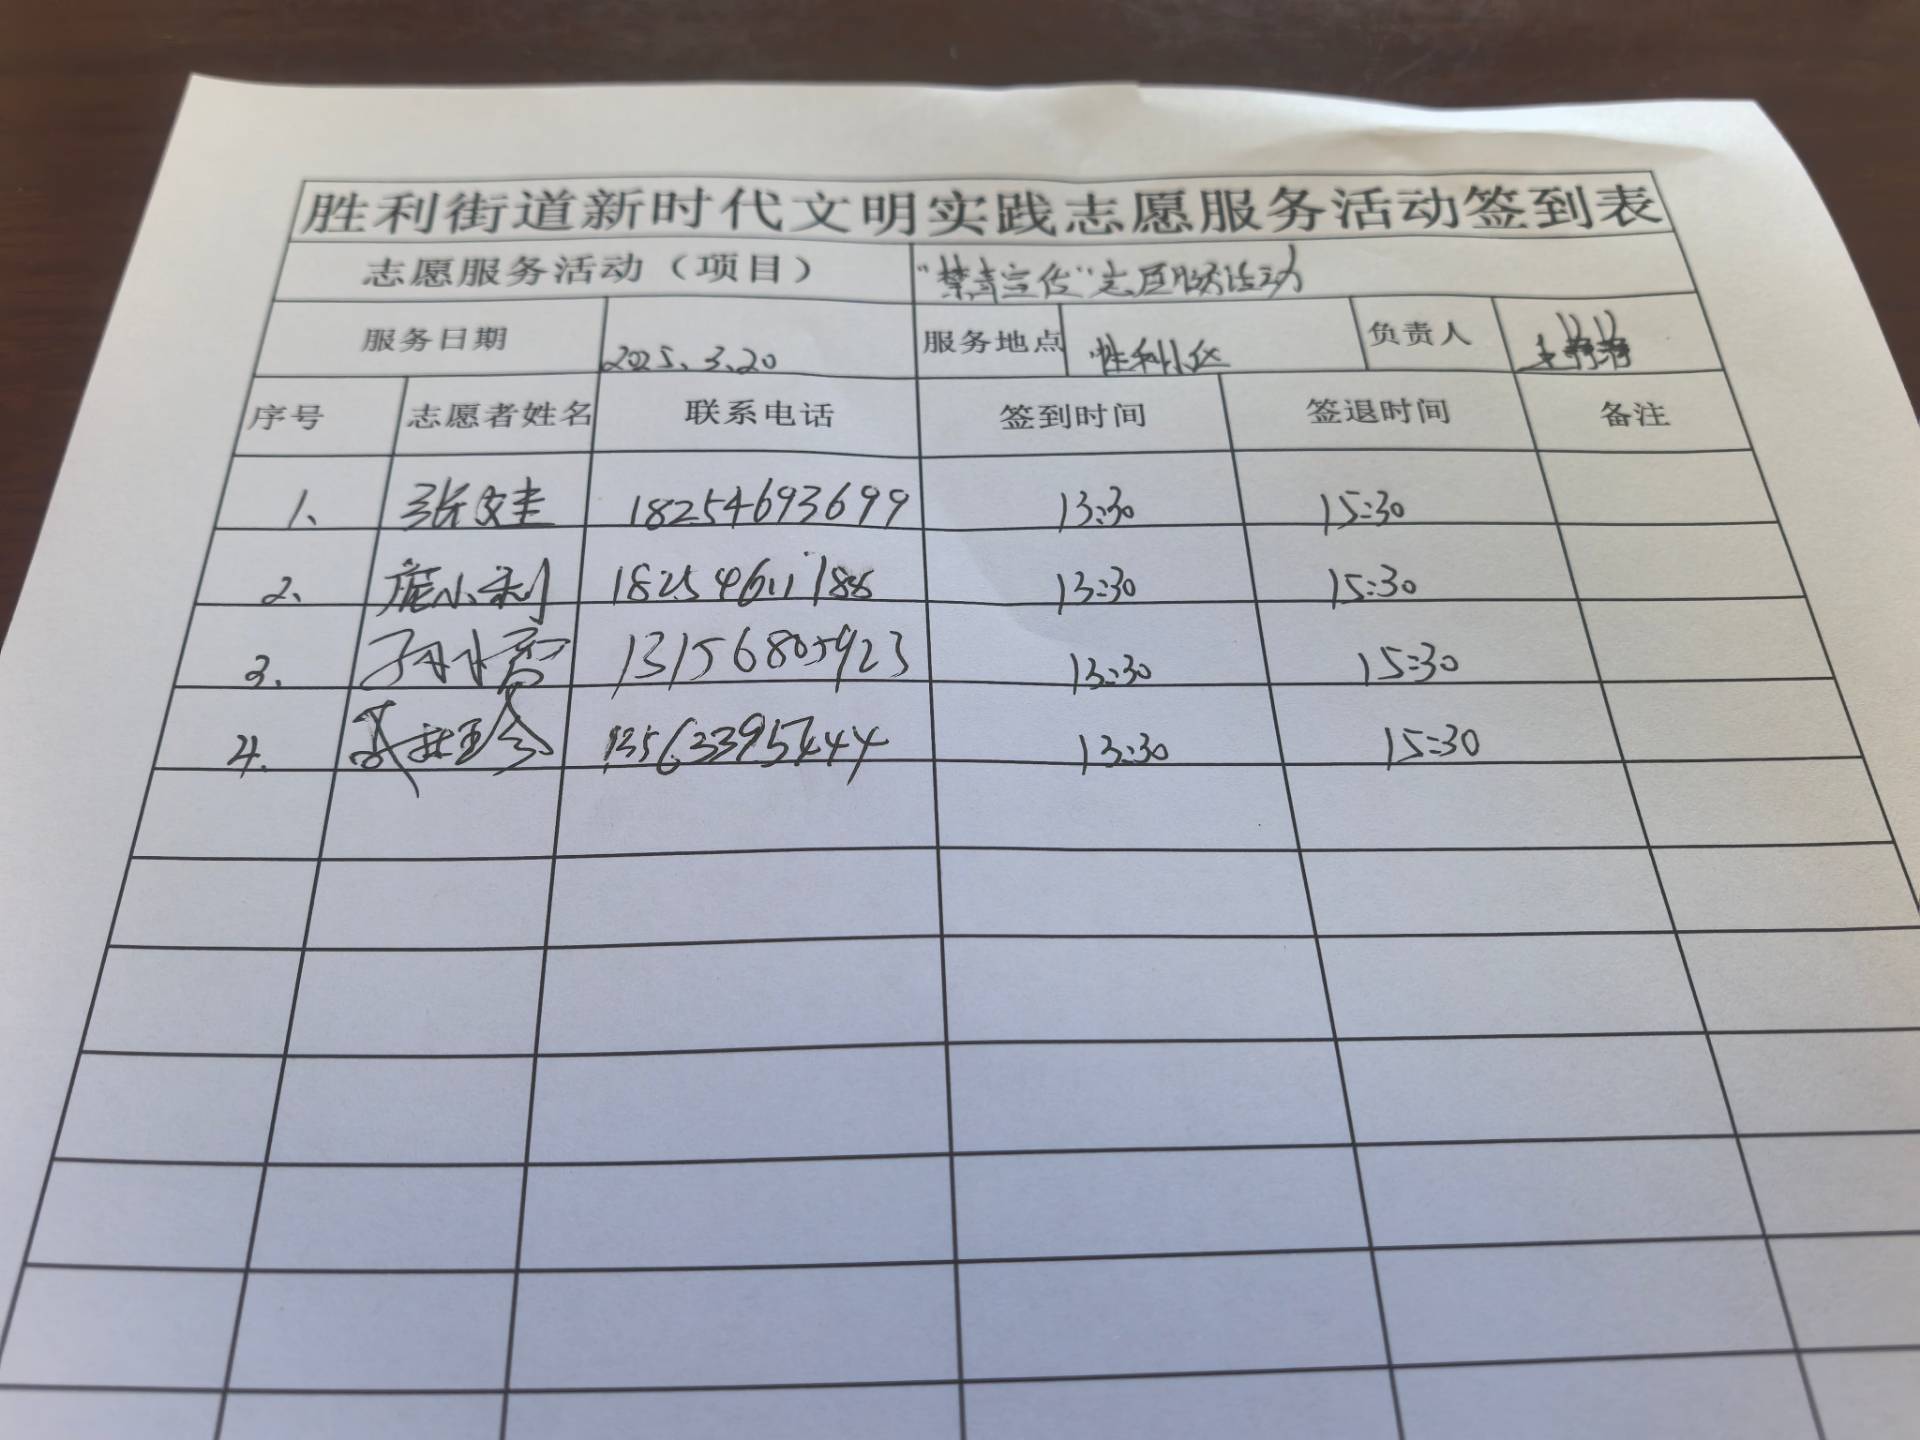 胜利街道新时代文明实践志愿服务活动签到表
志愿服务活动（项目） “禁毒宣传”志愿服务活动
服务日期 2025.3.20 服务地点 胜利小区 负责人
序号 志愿者姓名 联系电话 签到时间 签退时间 备注
1、 张文娃 18254693699 13:30 15:30
2、 庞小利 18254611188 13:30 15:30
3. 13156805923 13:30 15:30
4. 13563395444 13:30 15:30